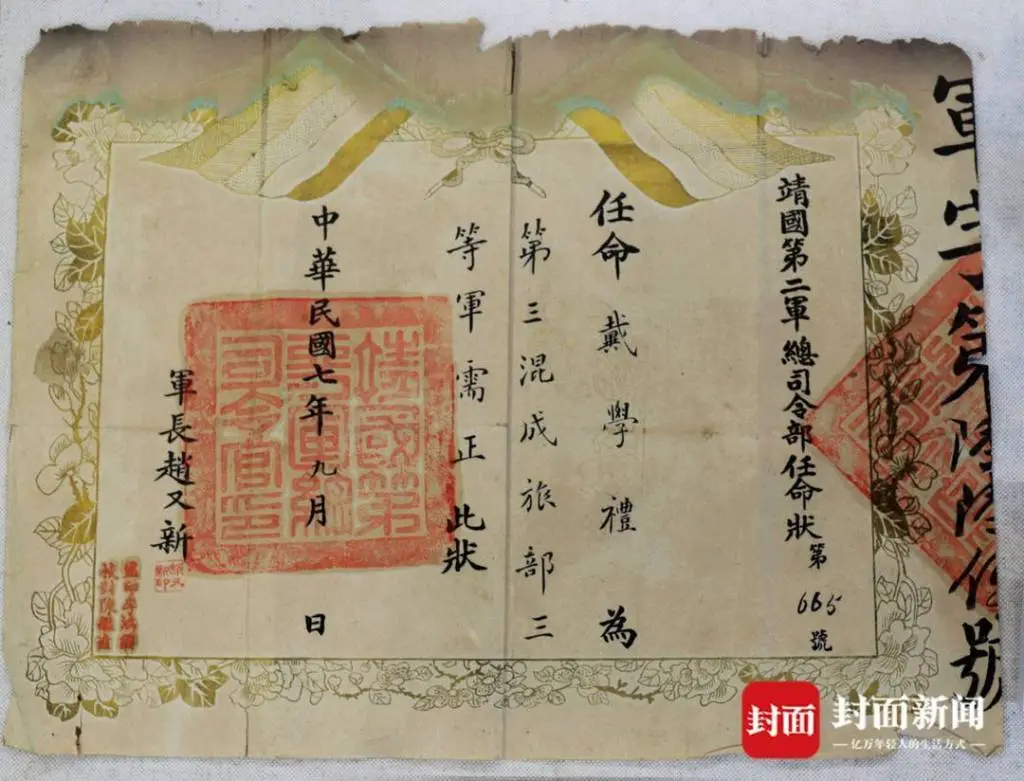 軍字第陸陸伍號
靖國第二軍總司令部任命狀第665號
任命戴學禮為
第三混成旅部三
等軍需正此狀
中華民國七年九月 日
軍長趙又新
靖國第
二軍總
司令官印
封面
封面新闻
亿万年轻人的生活方式